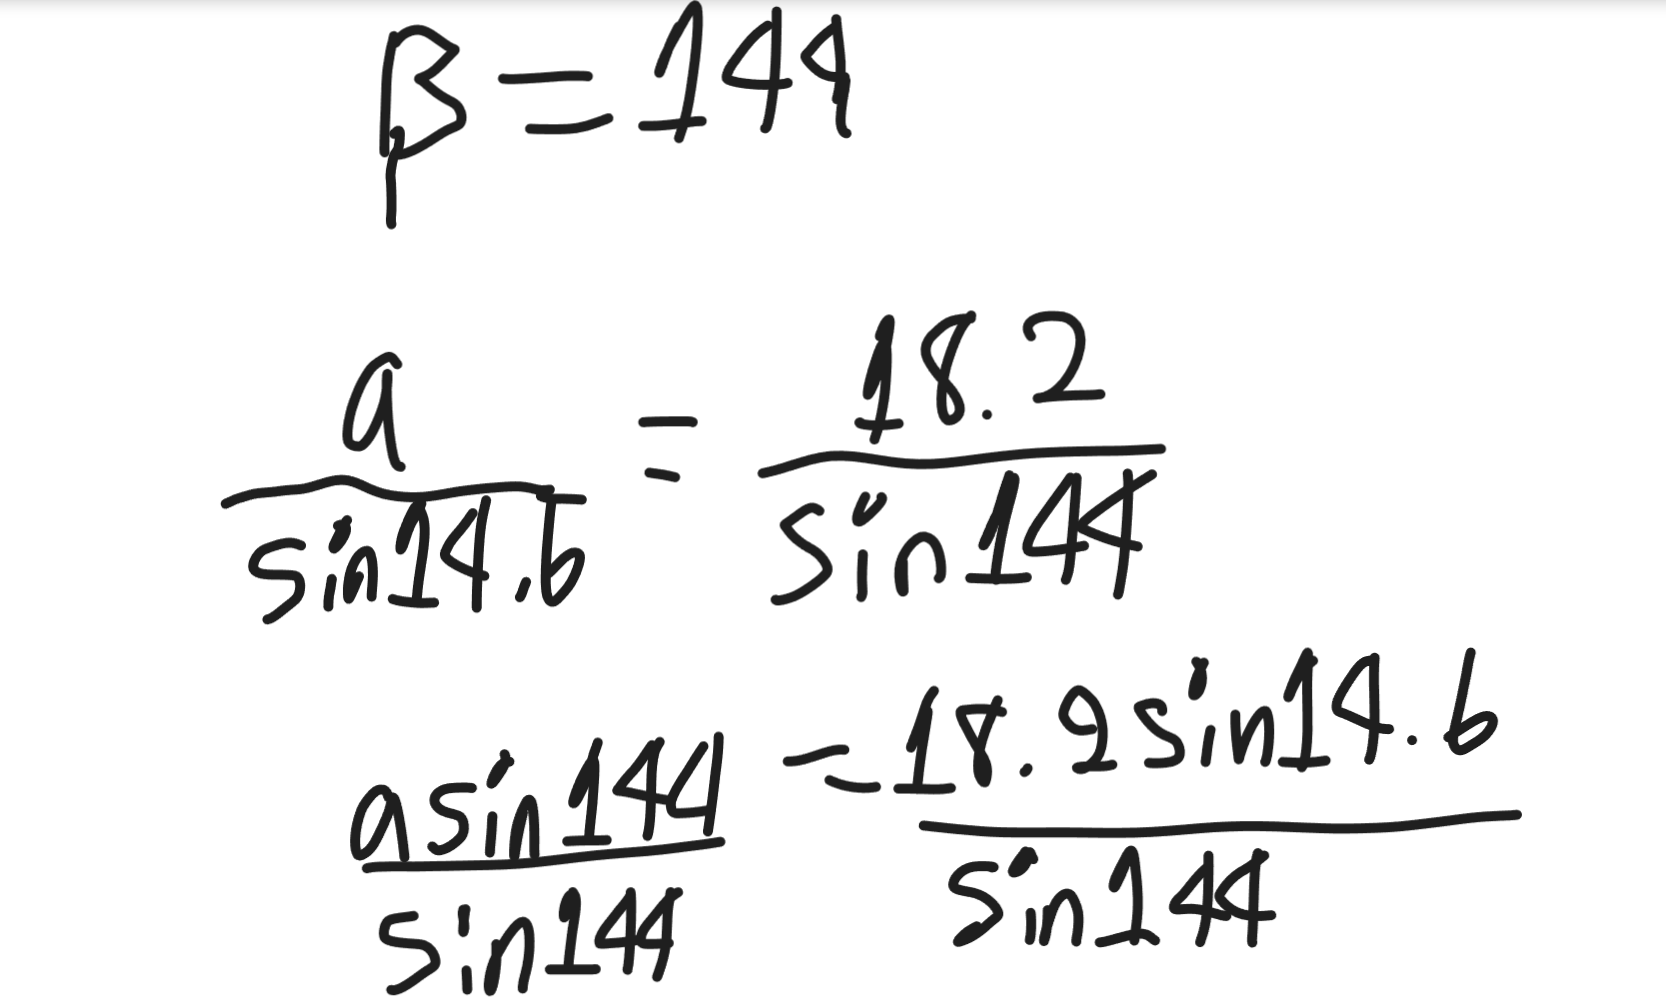 β = 144
a / sin14.6 = 18.2 / sin144
a sin144 / sin144 = 18.2 sin14.6 / sin144